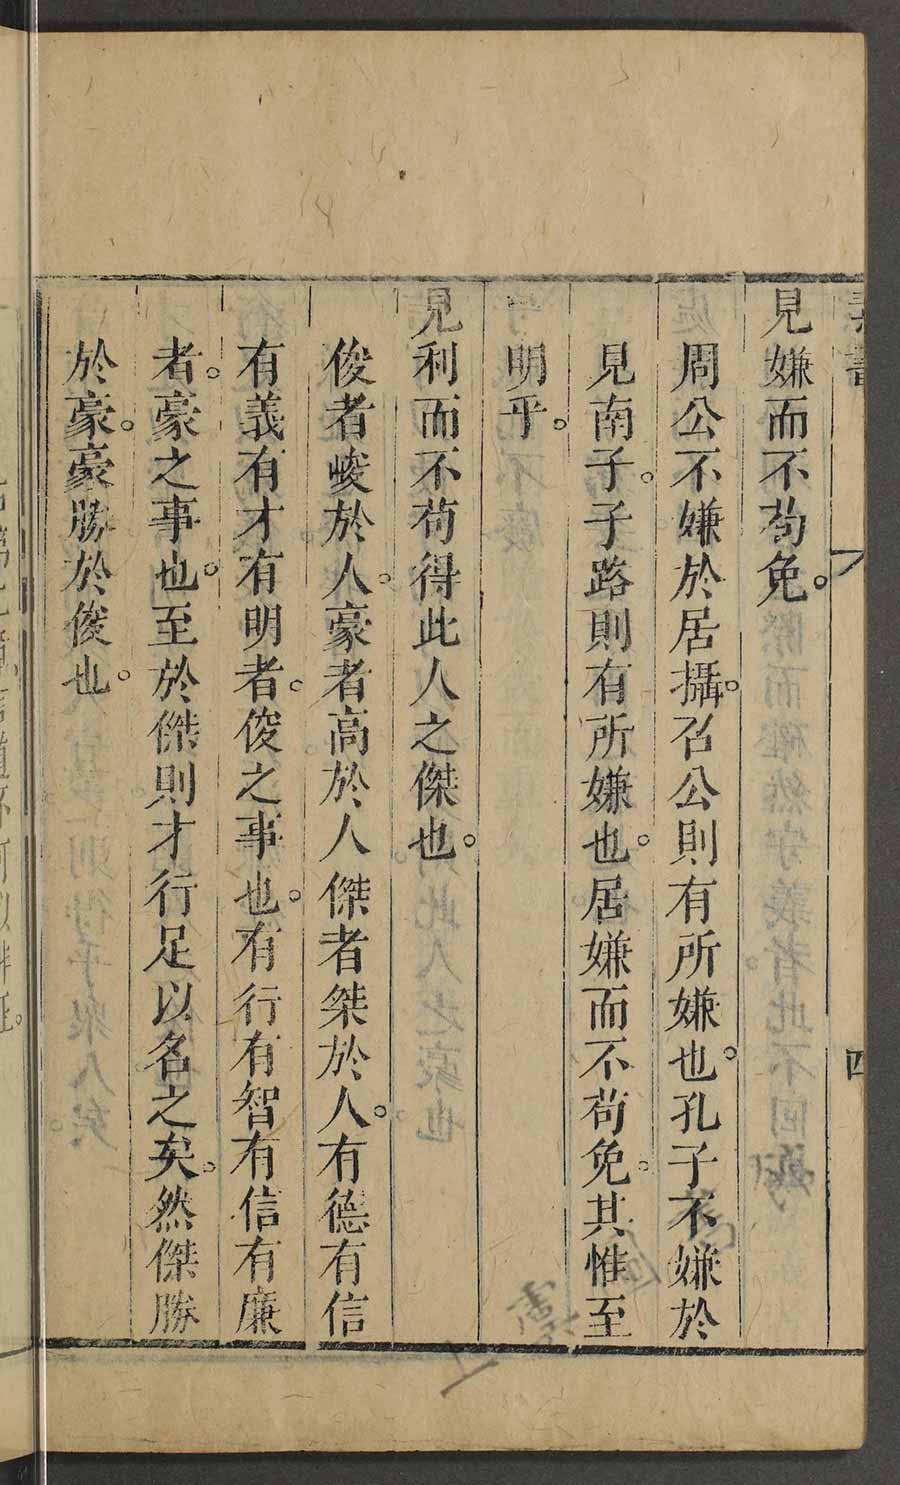 素書
四
見嫌而不茍免。
周公不嫌於居攝。召公則有所嫌也。孔子不嫌於
見南子。子路則有所嫌也。居嫌而不茍免。其惟至
明乎。
見利而不茍得此人之傑也。
俊者峻於人。豪者高於人傑者桀於人。有德有信
有義有才有明者。俊之事也。有行有智有信有廉
者。豪之事也。至於傑則才行足以名之矣。然傑勝
於豪。豪勝於俊也。